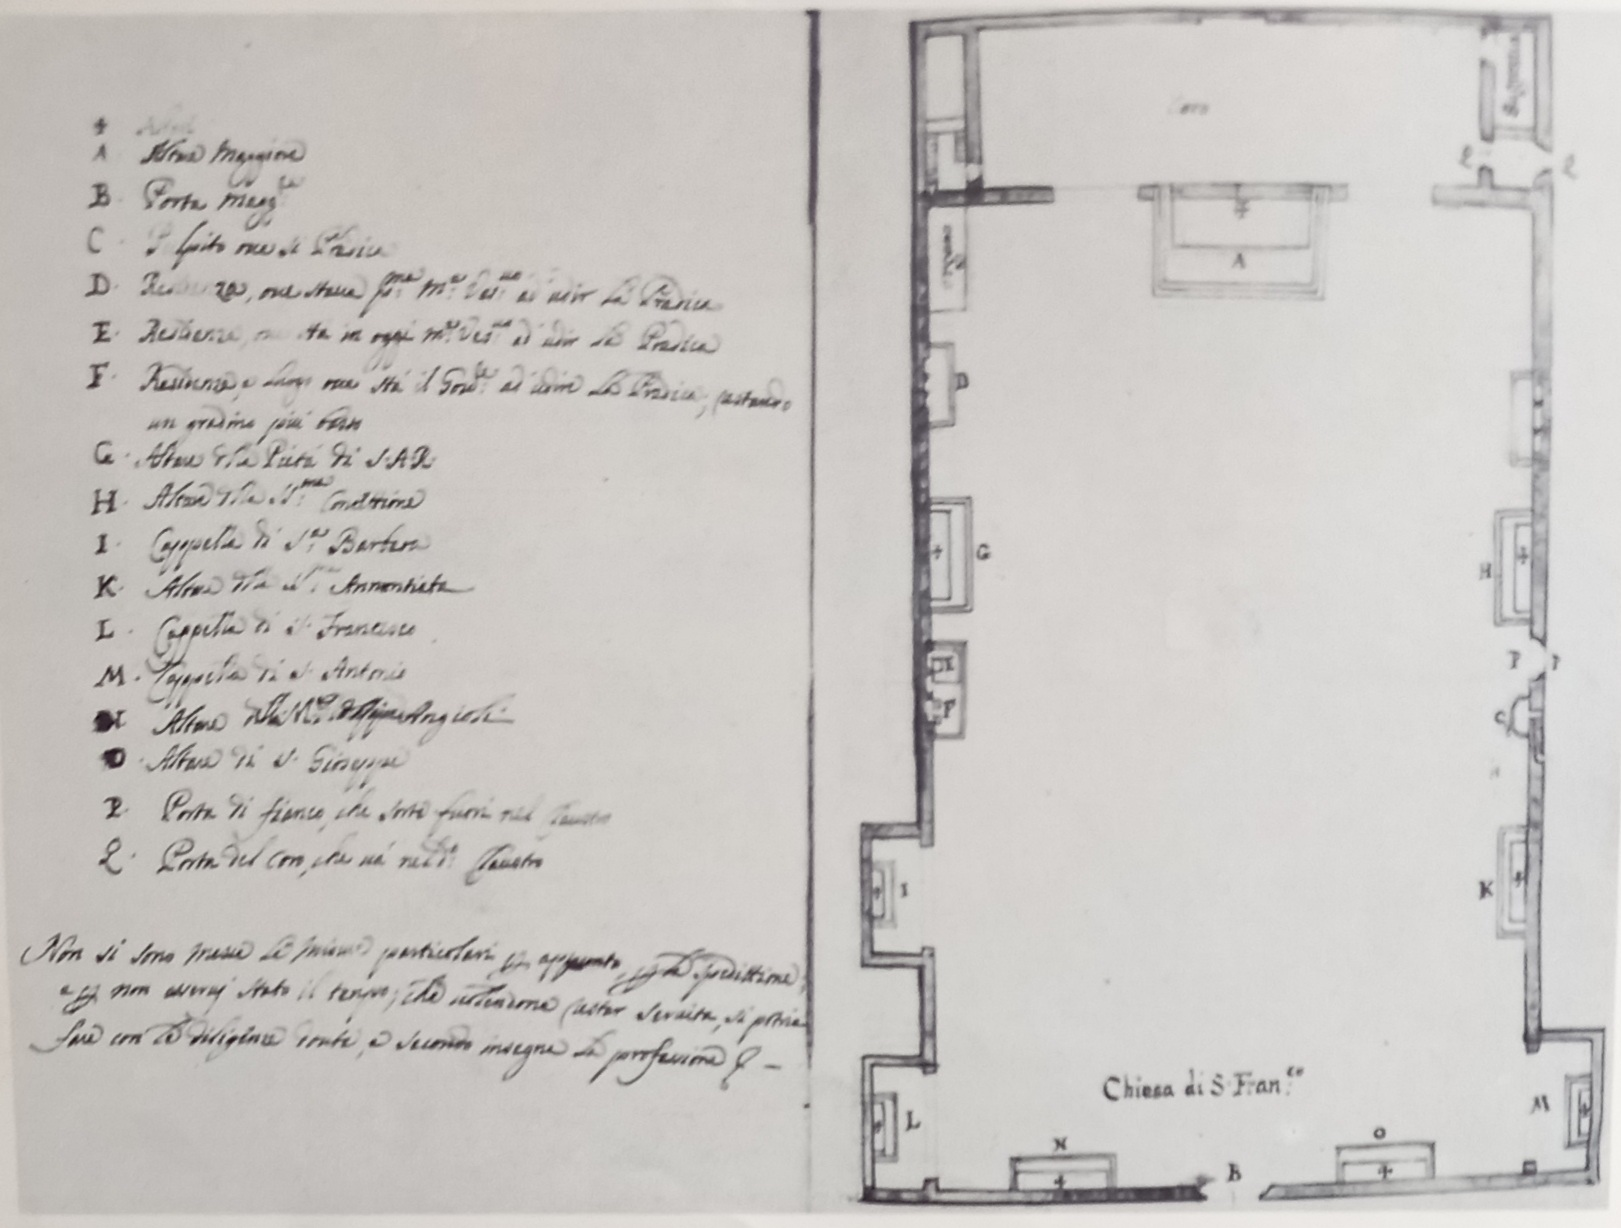 + Altari
A Altare Maggiore
B. Porta Magg.re
C. Pulpito oue si Predica
D. Residenza, oue staua p.ma M.r Ves.uo ad udir la Predica
E. Residenza, oue sta in oggi M.r Ves.uo ad udir la Predica
F. Residenza, e luogo oue stà il Gou.re ad udire la Predica, restando
un gradino più basso
G. Altare della Pietà di S.A.R.
H. Altare della SS.ma Concettione
I. Cappella di S.ta Barbara
K. Altare della SS.ma Annontiata
L. Cappella di S. Francesco
M. Cappella di S. Antonio
N Altare della Angioli
O. Altare di S. Gioseppe
P. Porta di fianco, che sorte fuori nel Claustro
Q. Porta del Coro, che uà nel d.o Claustro
Non si sono messe le misure particolari p. appunto, p. la speditione,
e p. non esserui stato il tempo, che uolendone restar seruita, si potrà
fare con le diligenze douute, e secondo insegna la professione
Coro
Q Q
A
D
G
H
E
F
P P
C
I
K
Chiesa di S. Fran.co
L
M
N
O
B